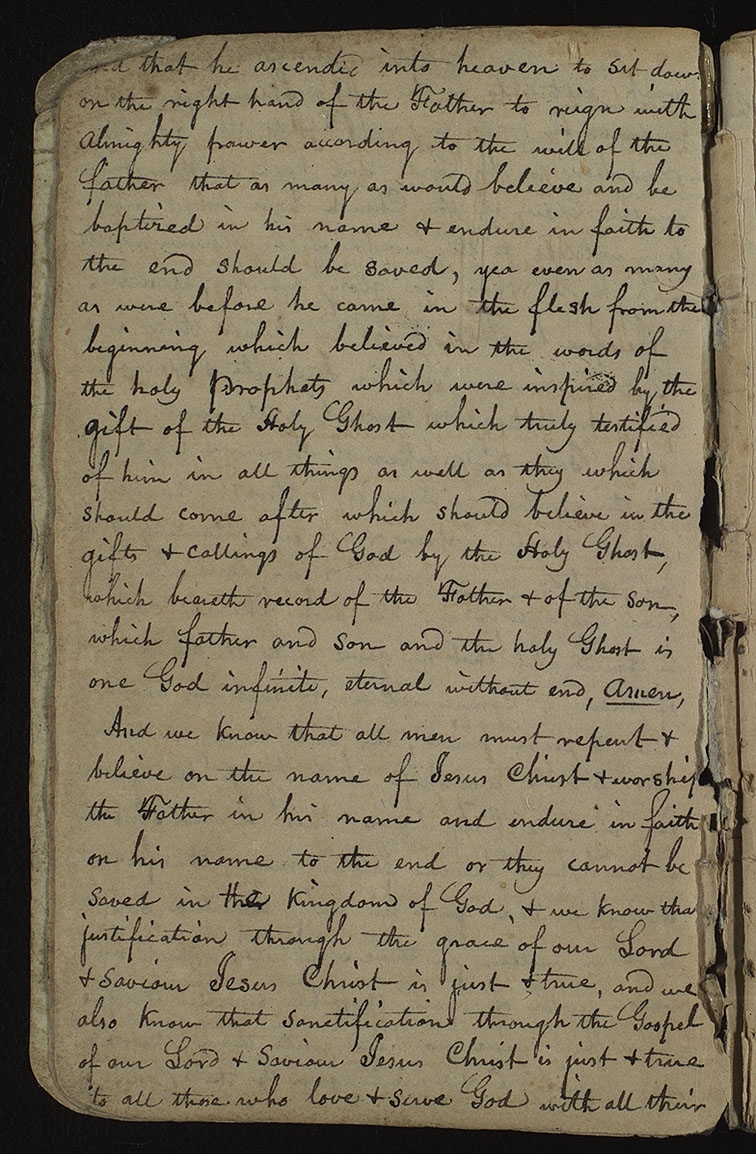 and that he ascended into heaven to sit down
on the right hand of the Father to reign with
Almighty power according to the will of the
father that as many as would believe and be
baptized in his name & endure in faith to
the end should be saved, yea even as many
as were before he came in the flesh from the
beginning which believed in the words of
the holy Prophets which were inspired by the
gift of the Holy Ghost which truly testified
of him in all things as well as they which
should come after which should believe in the
gifts & callings of God by the Holy Ghost,
which beareth record of the Father & of the son,
which father and son and the holy Ghost is
one God infinite, eternal without end, Amen,
And we know that all men must repent &
believe on the name of Jesus Christ & worship
the Father in his name and endure in faith
on his name to the end or they cannot be
saved in the Kingdom of God, & we know tha
justification through the grace of our Lord
& Saviour Jesus Christ is just & true, and we
also know that sanctification through the Gospel
of our Lord & Saviour Jesus Christ is just & true
to all those who love & serve God with all their